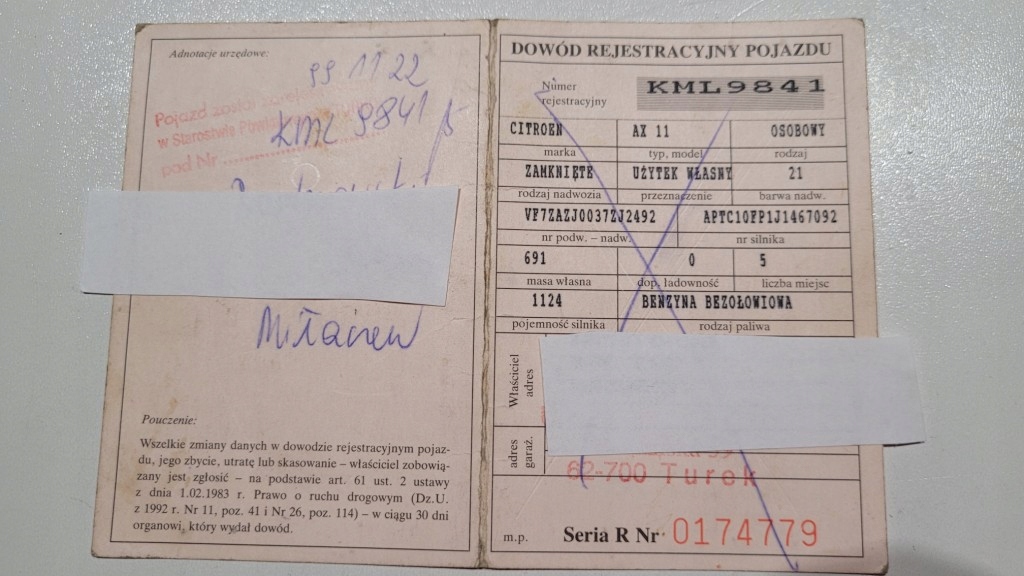 Adnotacje urzędowe:
99 11 22
Pojazd został
w Starostwie
pod Nr
KML 9841
Miłaczew
Pouczenie:
Wszelkie zmiany danych w dowodzie rejestracyjnym pojaz-
du, jego zbycie, utratę lub skasowanie – właściciel zobowią-
zany jest zgłosić – na podstawie art. 61 ust. 2 ustawy
z dnia 1.02.1983 r. Prawo o ruchu drogowym (Dz.U.
z 1992 r. Nr 11, poz. 41 i Nr 26, poz. 114) – w ciągu 30 dni
organowi, który wydał dowód.
DOWÓD REJESTRACYJNY POJAZDU
Numer
rejestracyjny
KML9841
CITROEN AX 11 OSOBOWY
marka typ, model rodzaj
ZAMKNIĘTE UŻYTEK WŁASNY 21
rodzaj nadwozia przeznaczenie barwa nadw.
VF7ZAZJ0037ZJ2492 APTC10FP1J1467092
nr podw. – nadw. nr silnika
691 0 5
masa własna dop. ładowność liczba miejsc
1124 BENZYNA BEZOŁOWIOWA
pojemność silnika rodzaj paliwa
Właściciel
adres
adres
garaż.
62-700 Turek
m.p. Seria R Nr 0174779